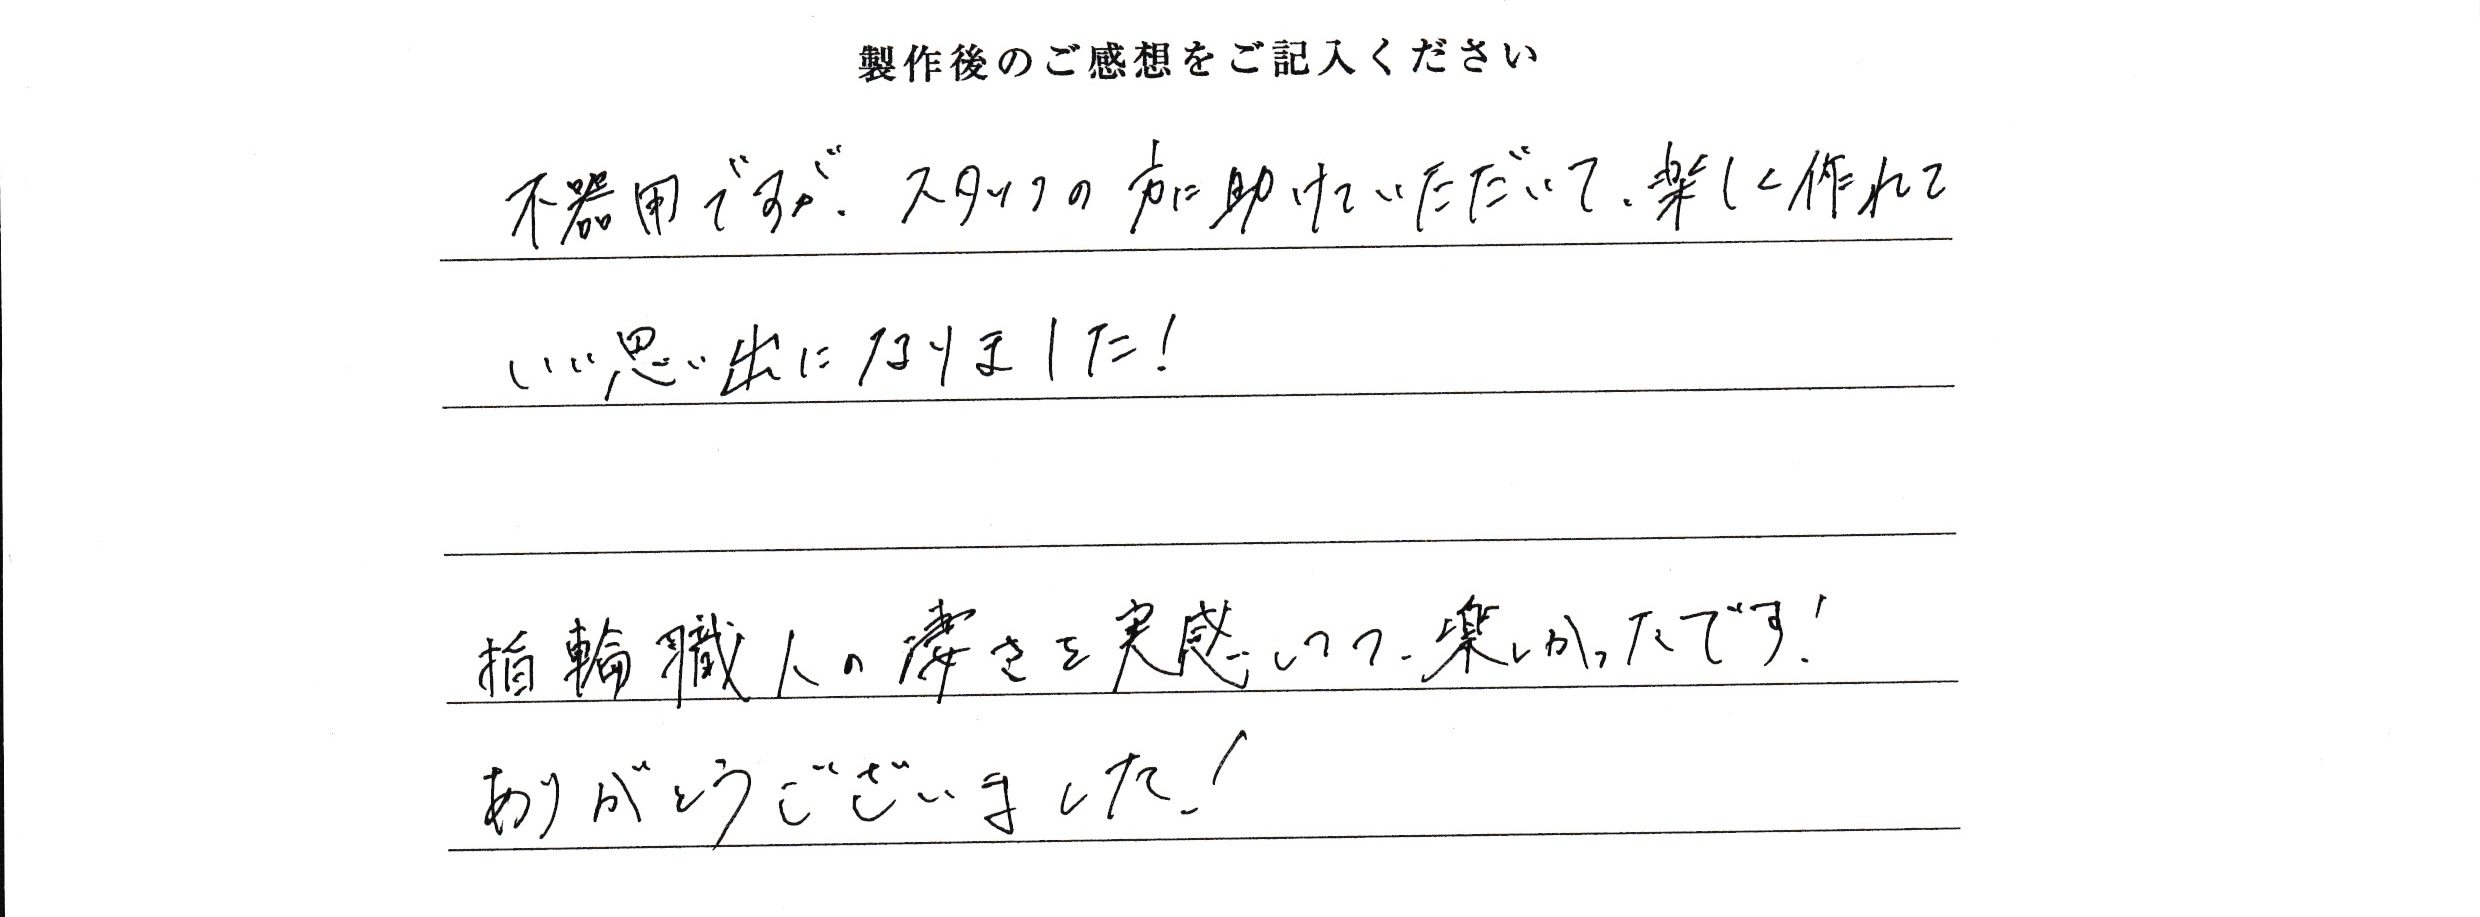 製作後のご感想をご記入ください
不器用ですが、スタッフの方に助けていただいて、楽しく作れて
いい思い出になりました!
指輪職人の凄さを実感しつつ、楽しかったです!
ありがとうございました!